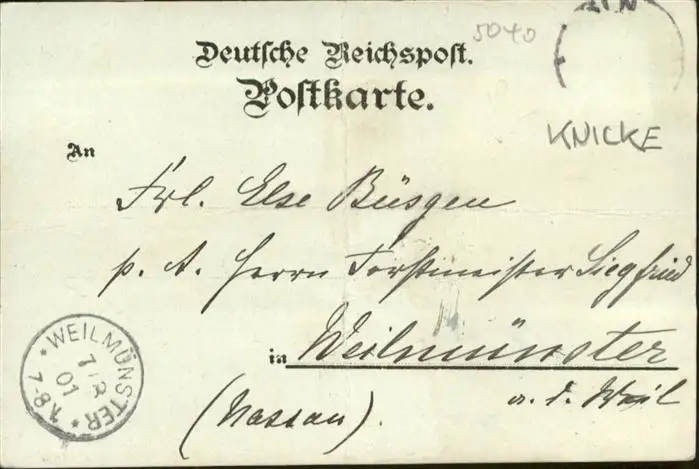 5040
Deutsche Reichspost.
Postkarte.
KNICKE
An
Frl. Else Büsgen
p. A. Herrn Forstmeister Siegfried
in Weilmünster
a. d. Weil
(Nassau).
WEILMÜNSTER
01
7-8